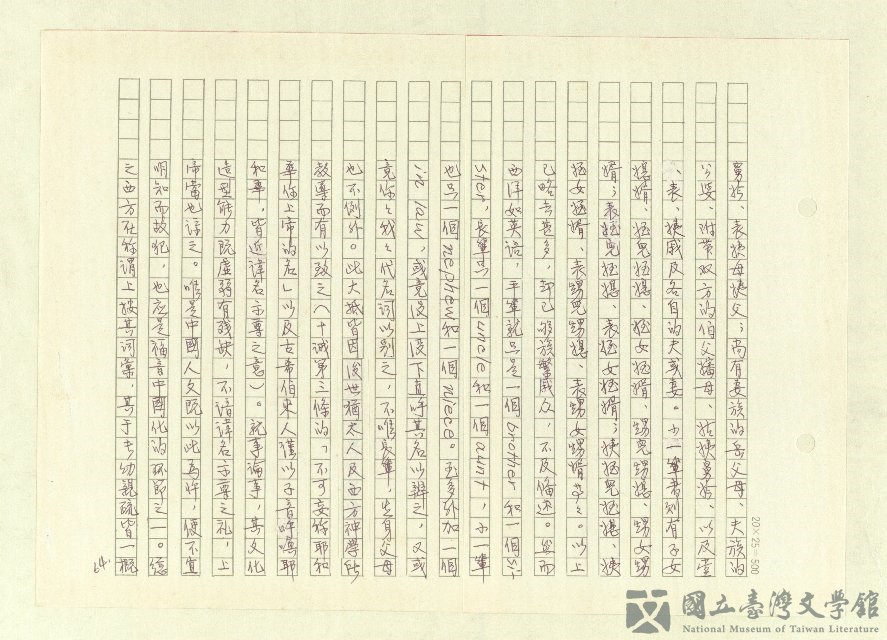 舅妗、表姨母姨父；尚有妻族的岳父母、夫族的
公婆、附帶双方的伯父嬸母、姑姨舅妗、以及堂
、表、姨戚及各自的夫或妻。少一輩者則有子女
媳婿、姪兒姪媳、姪女姪婿、甥兒甥媳、甥女甥
婿；表姪兒姪媳、表姪女姪婿；姨姪兒姪媳、姨
姪女姪婿、表甥兒甥媳、表甥女甥婿等々。以上
已略去甚多，即已族族繁戚众，不及備述。然而
西洋如英語，平輩就只是一個brother和一個si-
ster，長輩只一個uncle和一個aunt，小一輩
也只一個nephew和一個niece。至多外加一個
in law，或竟沒上沒下直呼其名以辨之，又或
竟你々我々代名詞以別之，不唯長輩，生身父母
也不例外。此大抵皆因後世猶太人及西方神學所
教導而有以致之（十誡第三條的「不可妄稱耶和
華你上帝的名」以及古希伯來人僅以子音呼喚耶
和華，皆近諱名示尊之意）。就事論事，其文化
造型能力既虛弱有殘缺，不諳諱名示尊之礼，上
帝當也諒之。唯是中國人文既以此為許，便不宜
明知而故犯，也應是福音中國化的环節之一。憶
之西方在稱謂上按其詞彙，其于长幼親疏皆一概
64.
20×25=500
國立臺灣文學館
National Museum of Taiwan Literature